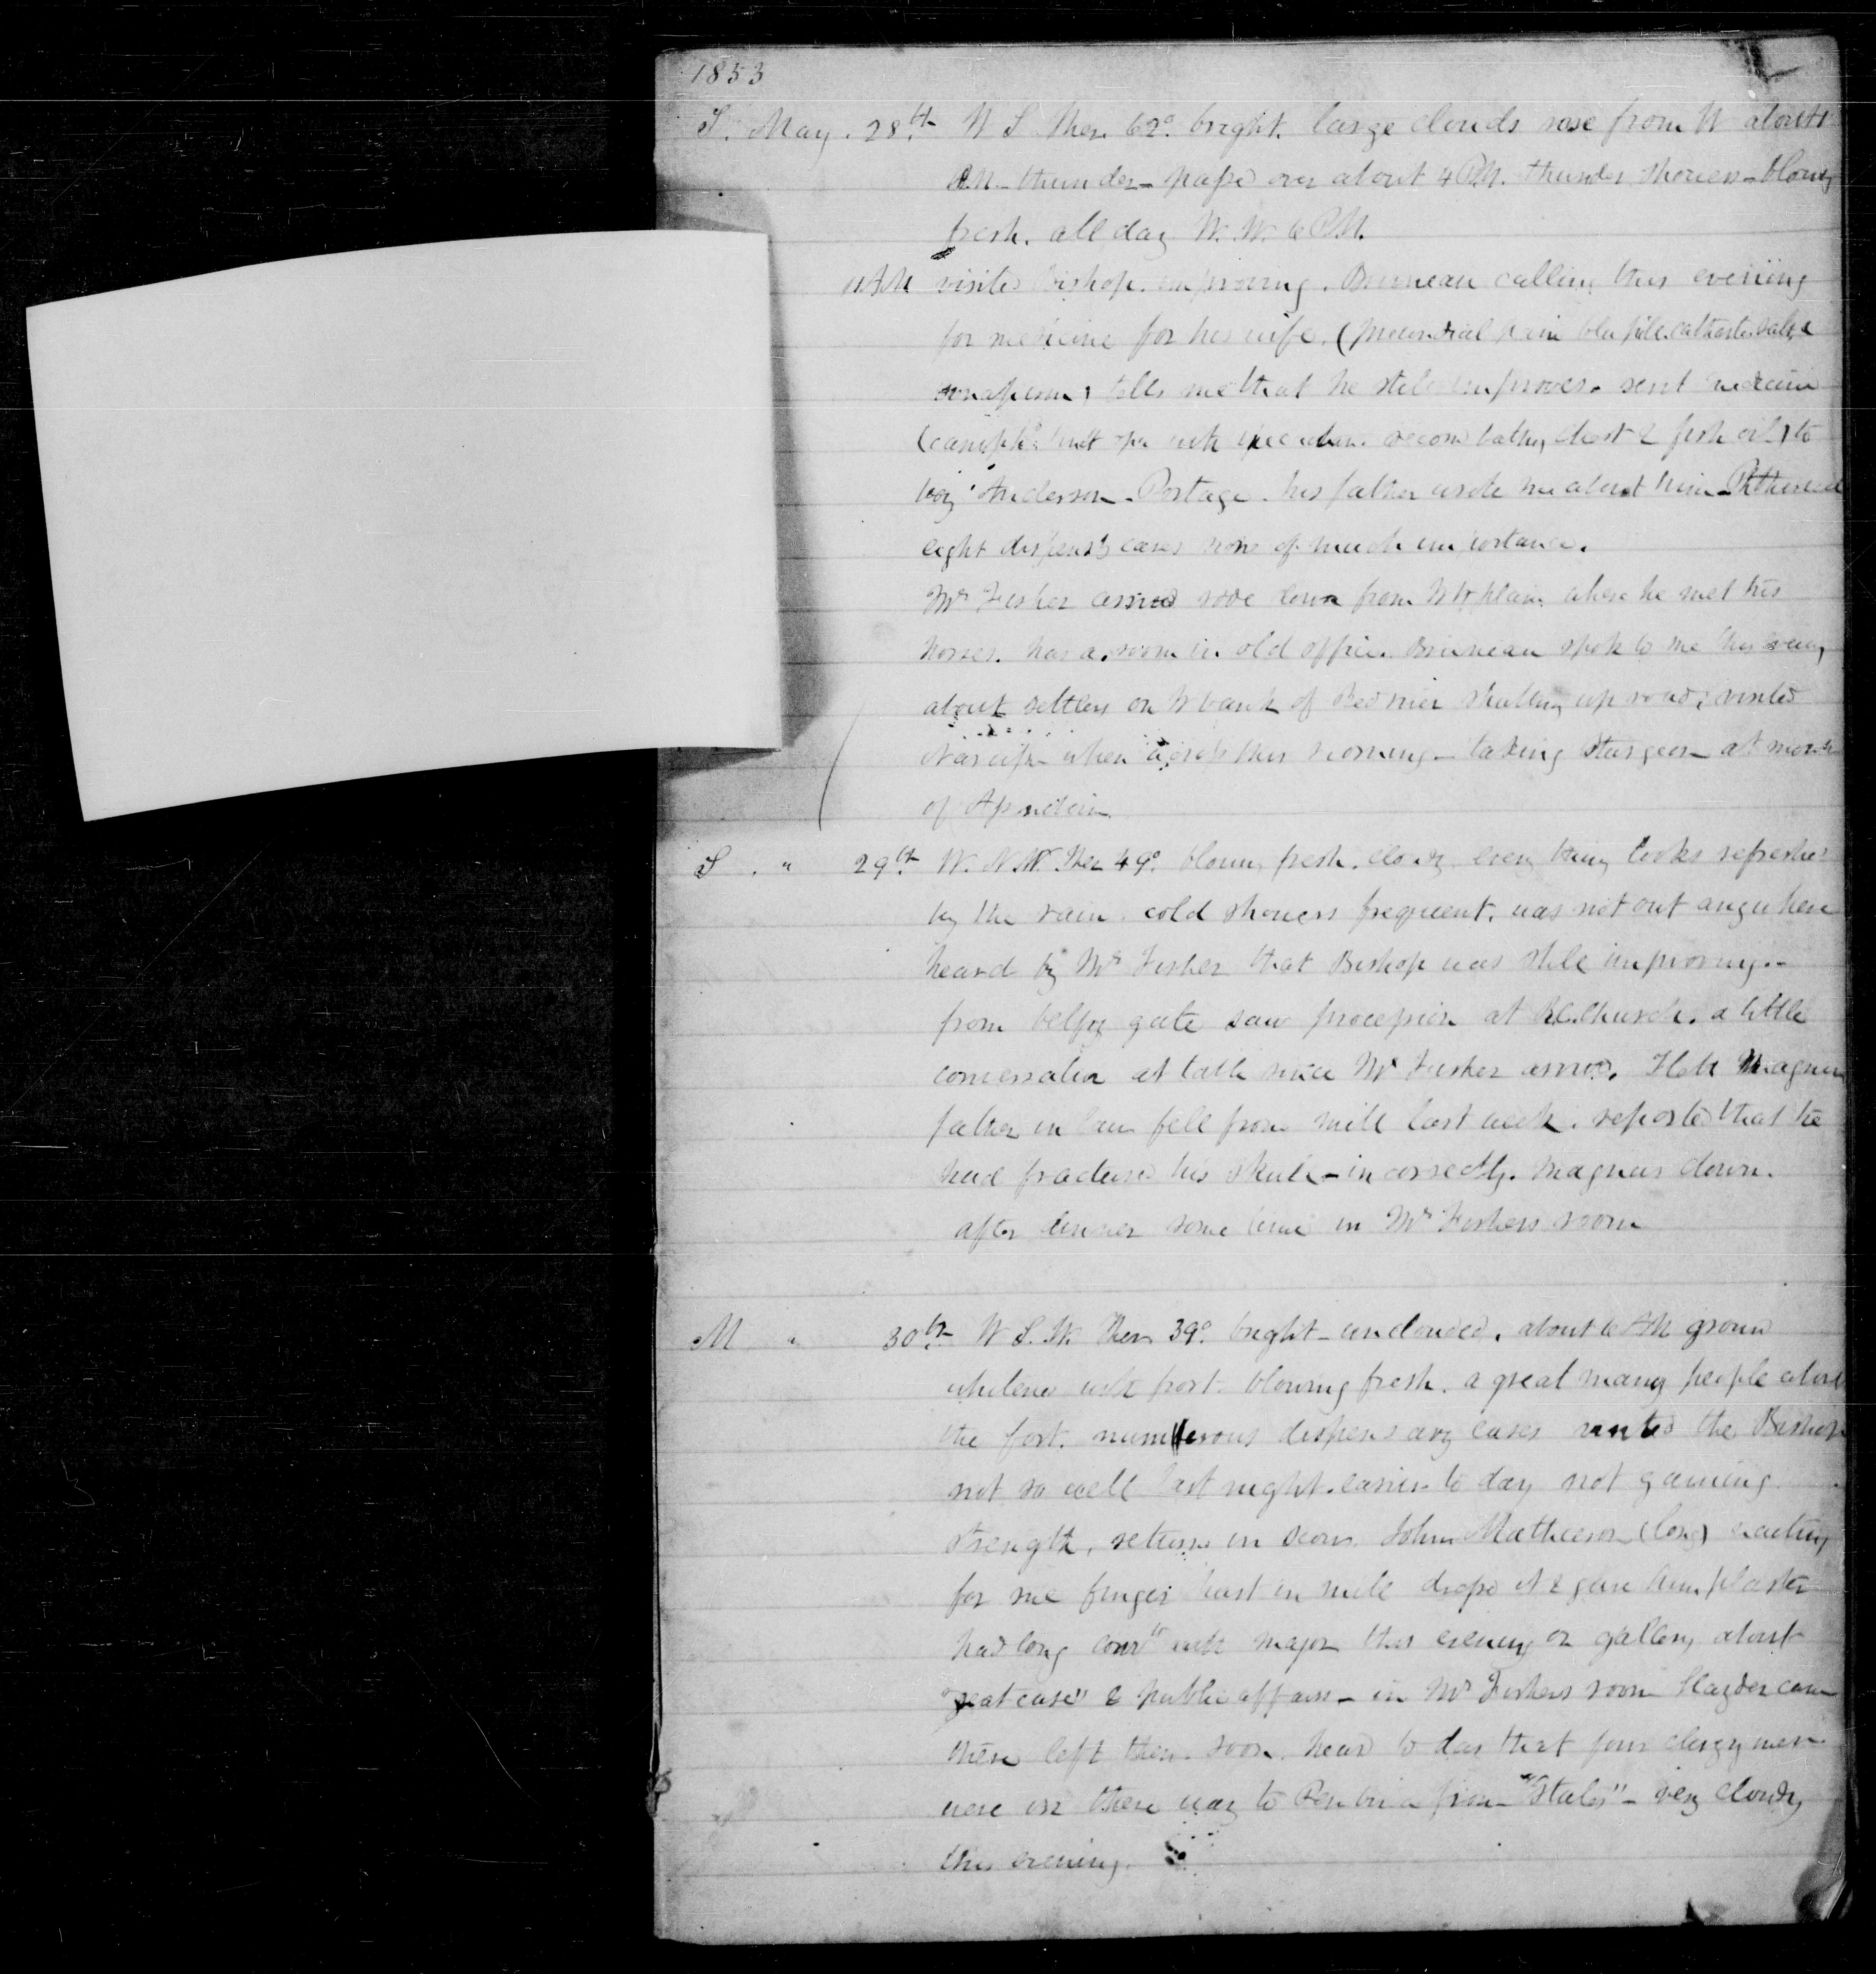 1853
S. May. 28th W S. Ther. 62° bright. large clouds rose from W about
P.M. thunder - passed over about 4 P.M. thunder showers - blowing
fresh. all day W. W. 6 P.M.
11 AM visited Bishop. improving. Bruneau calling this evening
for medicine for his wife. ( pain blue pill. cathartic salts &
sinapism) tells me that he still improves. sent medicine
( recom bathing chest & fish oil) to
boy Anderson. Portage. his father wrote me about him
eight dispensy cases none of much importance.
Mr Fisher arrived rode down from W H plain where he met his
horses. has a room in old office. Bruneau spoke to me this eveng
about settlers on W bank of Red river shutting up road; visited
when across this morning - taking sturgeon at mouth
of Assineboin
S. " 29th W. N.W. Ther 49° blowing fresh. cloudy every thing looks refreshed
by the rain. cold showers frequent. was not out anywhere
heard by Mr Fisher that Bishop was still improving. -
from belfry gate saw procession at R.C. Church. a little
conversation at table since Mr Fisher arrived. Magnus
father in law fell from mill last week. reported that he
had fractured his skull - incorrectly. Magnus down.
after dinner some time in Mr Fishers room
M " 30th W S. W. Ther 39° bright - unclouded. about 6 AM ground
whitened with frost. blowing fresh. a great many people about
the fort. numerous dispensary cases visited the Bishop
not so well last night. easier to day not gaining
strength. returned in John Matheson (long) waiting
for me finger hurt in mill dressd it & gave him plaster
had long convn with major this evening on gallery about
"great case" & public affairs - in Mr Fishers room came
there left them soon. heard to day that four clergymen
were on there way to Pembina from "States" - very cloudy
this evening.